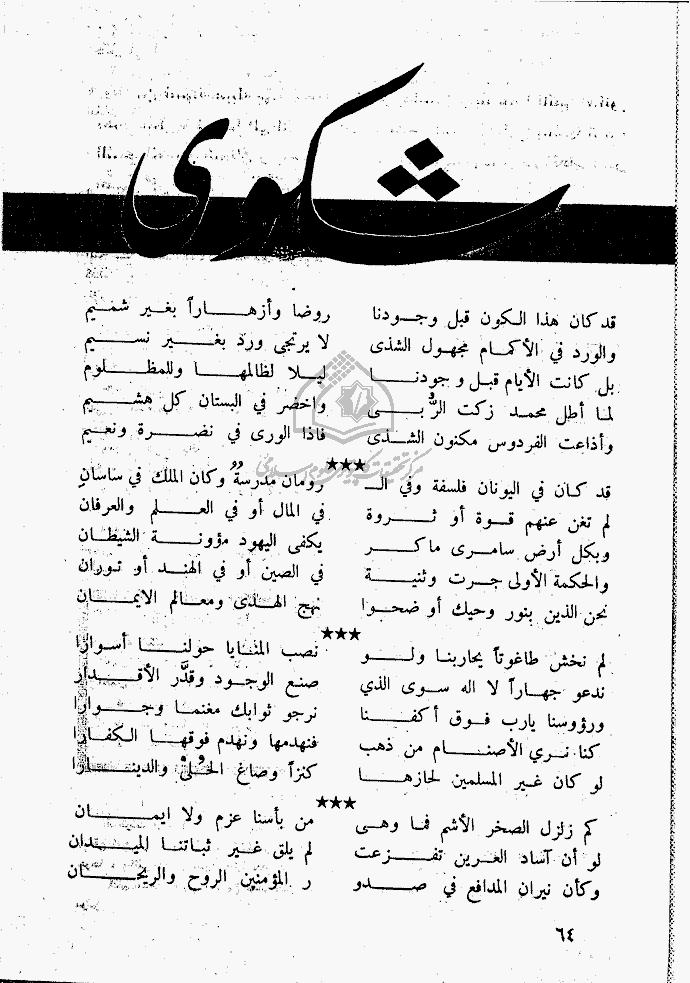 شكوى
قد كان هذا الكون قبل وجودنا روضا وأزهاراً بغير شميم
والورد في الأكمام مجهول الشذى لا يرتجى ورد بغير نسيم
بل كانت الأيام قبل وجودنا ليلا لظالمها وللمظلوم
لما أطل محمد زكت الرُّبى واخضر في البستان كل هشيم
وأذاعت الفردوس مكنون الشذى فاذا الورى في نضرة ونعيم
★★★
قد كان في اليونان فلسفة وفي الـ رومان مدرسةٌ وكان الملك في ساسان
لم تغن عنهم قوة أو ثروة في المال أو في العلم والعرفان
وبكل أرض سامرى ماكر يكفى اليهود مؤونة الشيطان
والحكمة الأولى جرت وثنية في الصين أو في الهند أو توران
نحن الذين بنور وحيك أوضحوا نهج الهدى ومعالم الايمان
★★★
لم نخش طاغوتاً يحاربنا ولو نصب المنايا حولنا أسوارا
ندعو جهاراً لا اله سوى الذي صنع الوجود وقدَّر الأقدار
ورؤوسنا يارب فوق أكفنا نرجو ثوابك مغنما وجوارا
كنا نرى الأصنام من ذهب فنهدمها ونهدم فوقها الكفارا
لو كان غير المسلمين لحازها كنزاً وصاغ الحُلىْ والدينارا
★★★
كم زلزل الصخر الأشم فما وهى من بأسنا عزم ولا ايمان
لو أن آساد العرين تفزعت لم يلق غير ثباتنا الميدان
وكأن نيران المدافع في صدو ر المؤمنين الروح والريحان
٦٤